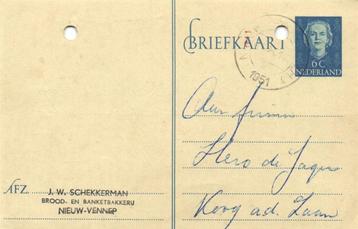 BRIEFKAART
6 C
NEDERLAND
1951
Aan firma
Hero de Jager
Koog a.d. Zaan
AFZ.
J. W. SCHEKKERMAN
BROOD- EN BANKETBAKKERIJ
NIEUW-VENNEP